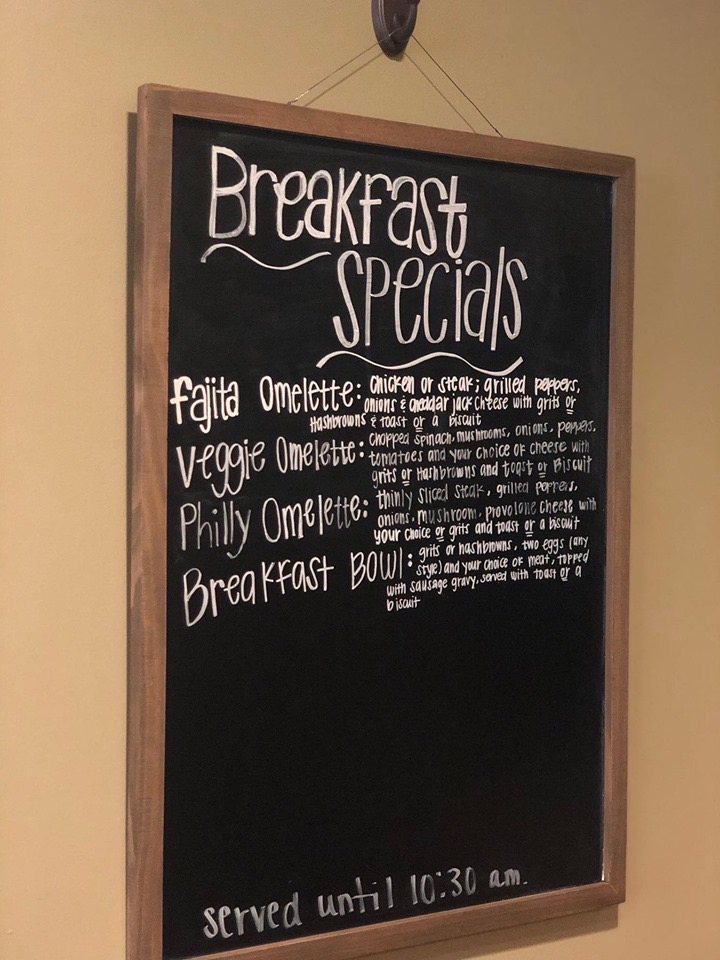 Breakfast
Specials
Fajita Omelette: chicken or steak; grilled peppers,
onions & cheddar jack cheese with grits or
Hashbrowns & toast or a Biscuit
Veggie Omelette: chopped spinach, mushrooms, onions, peppers,
tomatoes and your choice of cheese with
grits or Hashbrowns and toast or Biscuit
Philly Omelette: thinly sliced steak, grilled peppers,
onions, mushroom, provolone cheese with
your choice or grits and toast or a biscuit
Breakfast Bowl: grits or hashbrowns, two eggs (any
style) and your choice of meat, topped
with sausage gravy, served with toast or a
biscuit
served until 10:30 am.